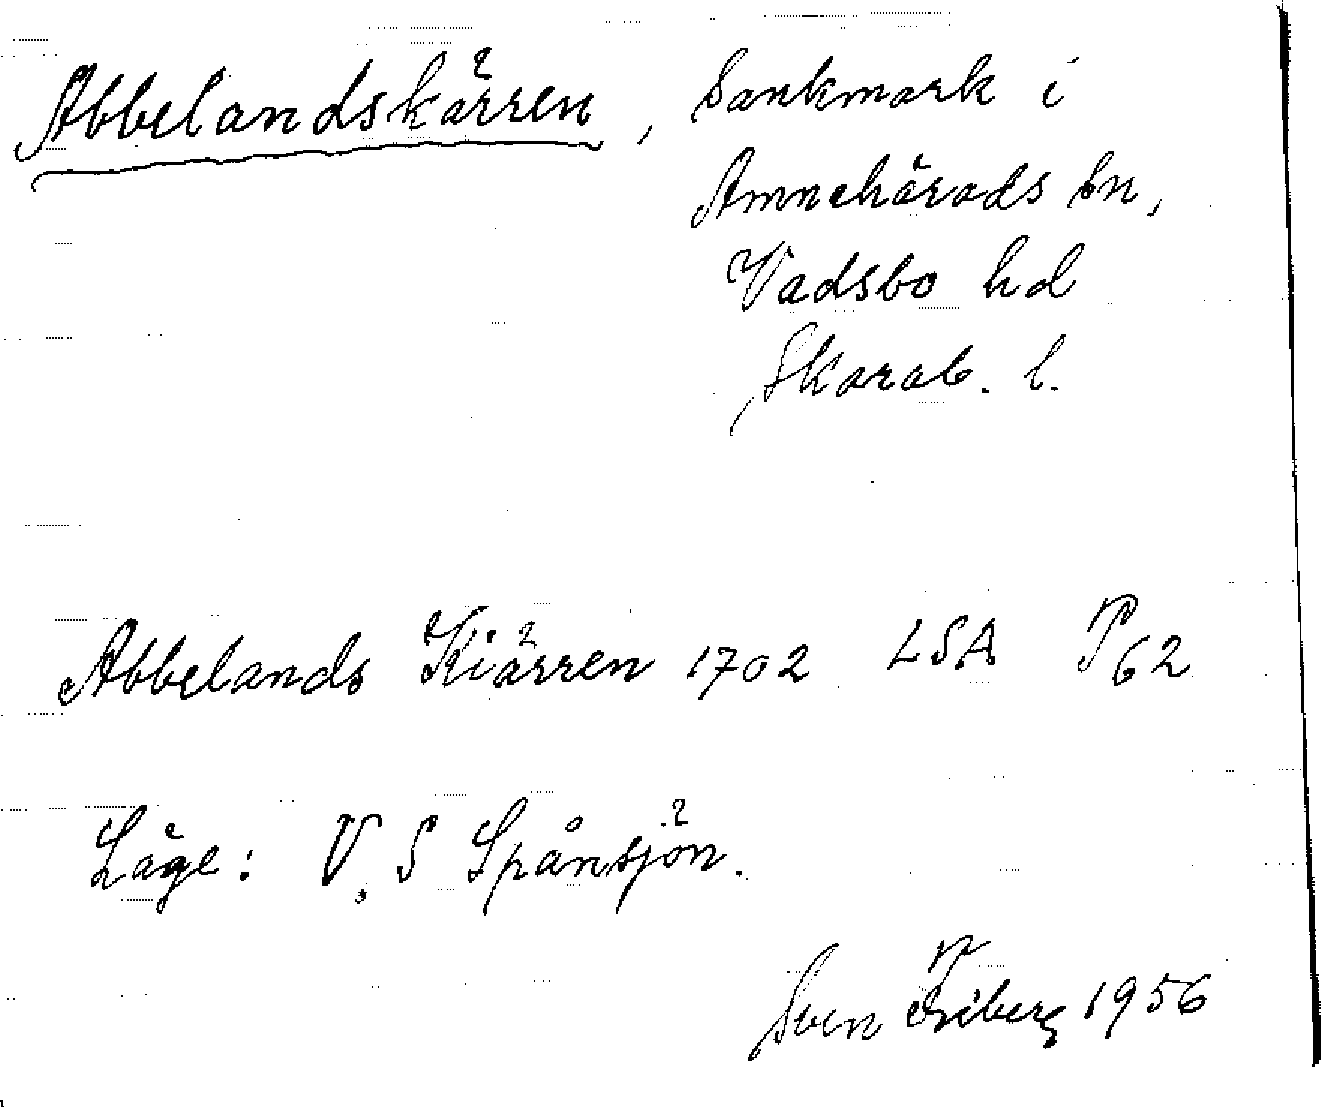 Abbelandskärren, Sankmark i
Amnehärads sn,
Vadsbo hd
Skarab. l.
Abbelands Kiärren 1702 LSA P62
Läge: V. S Spånsjön.
Sven Friberg 1956